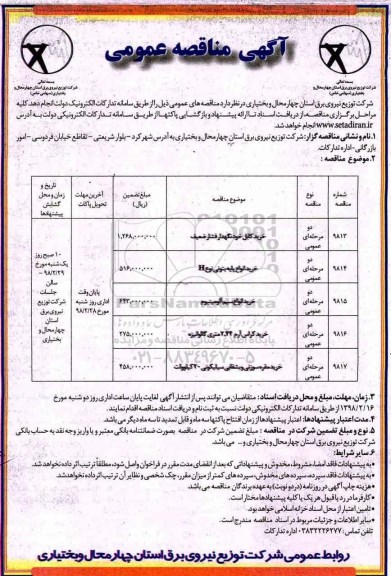 آگهی مناقصه عمومی
بسمه تعالی
شرکت توزیع نیروی برق استان چهارمحال و بختیاری (سهامی خاص)
شرکت توزیع نیروی برق استان چهارمحال و بختیاری در نظر دارد مناقصه های عمومی ذیل را از طریق سامانه تدارکات الکترونیک دولت انجام دهد. کلیه
مراحل برگزاری مناقصه از دریافت اسناد تا ارائه پیشنهاد و بازگشایی پاکتها از طریق سامانه تدارکات الکترونیکی دولت به آدرس
www.setadiran.ir انجام خواهد شد.
۱. نام و نشانی مناقصه گزار: شرکت توزیع نیروی برق استان چهارمحال و بختیاری به آدرس شهر کرد - بلوار شریعتی - تقاطع خیابان فردوسی - امور
بازرگانی - اداره تدارکات.
۲. موضوع مناقصه :
شماره مناقصه | نوع مناقصه | موضوع مناقصه | مبلغ تضمین (ریال) | آخرین مهلت تحویل پاکات | تاریخ و زمان و محل گشایش پیشنهادها
۹۸۱۳ | دو مرحله‌ای عمومی | خرید کابل خودنگهدار فشار ضعیف | ۱,۲۶۸,۰۰۰,۰۰۰
۹۸۱۴ | دو مرحله‌ای عمومی | خرید انواع پایه بتونی نوع H | ۵۱۶,۰۰۰,۰۰۰
۹۸۱۵ | دو مرحله‌ای عمومی | خرید | ۶۴۳,۰۰۰,۰۰۰
۹۸۱۶ | دو مرحله‌ای عمومی | خرید کراس آرم ۲,۴۴ متری گالوانیزه | ۲۷۵,۰۰۰,۰۰۰
۹۸۱۷ | دو مرحله‌ای عمومی | خرید مقره سوزنی و بشقابی سیلیکونی ۲۰ کیلوولت | ۴۵۸,۰۰۰,۰۰۰
پایان وقت اداری روز شنبه مورخ ۹۸/۲/۲۸
۱۰ صبح روز یک شنبه مورخ ۹۸/۲/۲۹ - سالن جلسات شرکت توزیع نیروی برق استان چهارمحال و بختیاری
ParsNamadData
۰۲۱-۸۸۳۴۹۶۷۰-۵
۳. زمان، مهلت، مبلغ و محل دریافت اسناد: متقاضیان می توانند پس از انتشار آگهی لغایت پایان ساعت اداری روز دو شنبه مورخ
۱۳۹۸/۲/۱۶ از طریق سامانه تدارکات الکترونیکی دولت نسبت به ثبت نام و دریافت اسناد مناقصه اقدام نمایند.
۴. مدت اعتبار پیشنهادها: اعتبار پیشنهادها از زمان افتتاح پاکتها سه ماه و قابل تمدید تا سه ماه دیگر می باشد.
۵. نوع و مبلغ تضمین شرکت در مناقصه : مبلغ تضمین شرکت در مناقصه بصورت ضمانتنامه بانکی معتبر و یا واریز وجه نقد به حساب بانکی
شرکت توزیع نیروی برق استان چهارمحال و بختیاری و... می باشد.
۶. سایر شرایط:
به پیشنهادات فاقد امضا، مشروط، مخدوش و پیشنهاداتی که بعد از انقضای مدت مقرر در فراخوان واصل شود، مطلقاً ترتیب اثر داده نخواهد شد.
به پیشنهادات فاقد سپرده، سپرده های مخدوش، سپرده های کمتر از میزان مقرر، چک شخصی و نظایر آن ترتیب اثر داده نخواهد شد.
هزینه چاپ آگهی در روزنامه (در دو نوبت) به عهده برندگان مناقصه می باشد.
کارفرما در رد یا قبول هر یک یا کلیه پیشنهادها مختار است.
تامین اعتبار از محل اسناد خزانه اسلامی خواهد بود.
سایر اطلاعات و جزئیات مربوط در اسناد مناقصه مندرج است.
تلفن تماس: ۰۳۸۳۲۲۲۶۲۷۷ اداره تدارکات
روابط عمومی شرکت توزیع نیروی برق استان چهارمحال و بختیاری